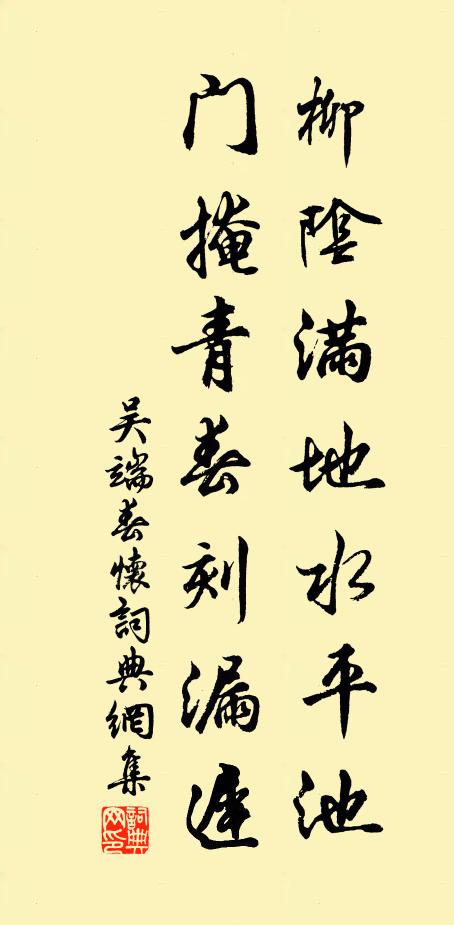 柳陰满地水平池
门掩青春刻漏遲
吴端春懷詞典網集
詞典网印